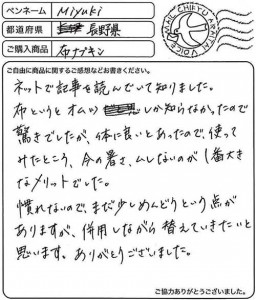 ペンネーム Miyuki
都道府県 長野県
ご購入商品 布ナプキン
MAIL CHIKYU ARATAI VOICE
ご自由に商品に関するご感想などお書きください。
ネットで記事を読んでいて知りました。
布というとオムツしか知らなかったので
驚きでしたが、体に良いとあったので、使って
みたところ、今の暑さ、ムレないのが1番大き
なメリットでした。
慣れないので、まだ少しめんどうという点が
ありますが、併用しながら替えていきたいと
思います。ありがとうございました。
ご協力ありがとうございました。